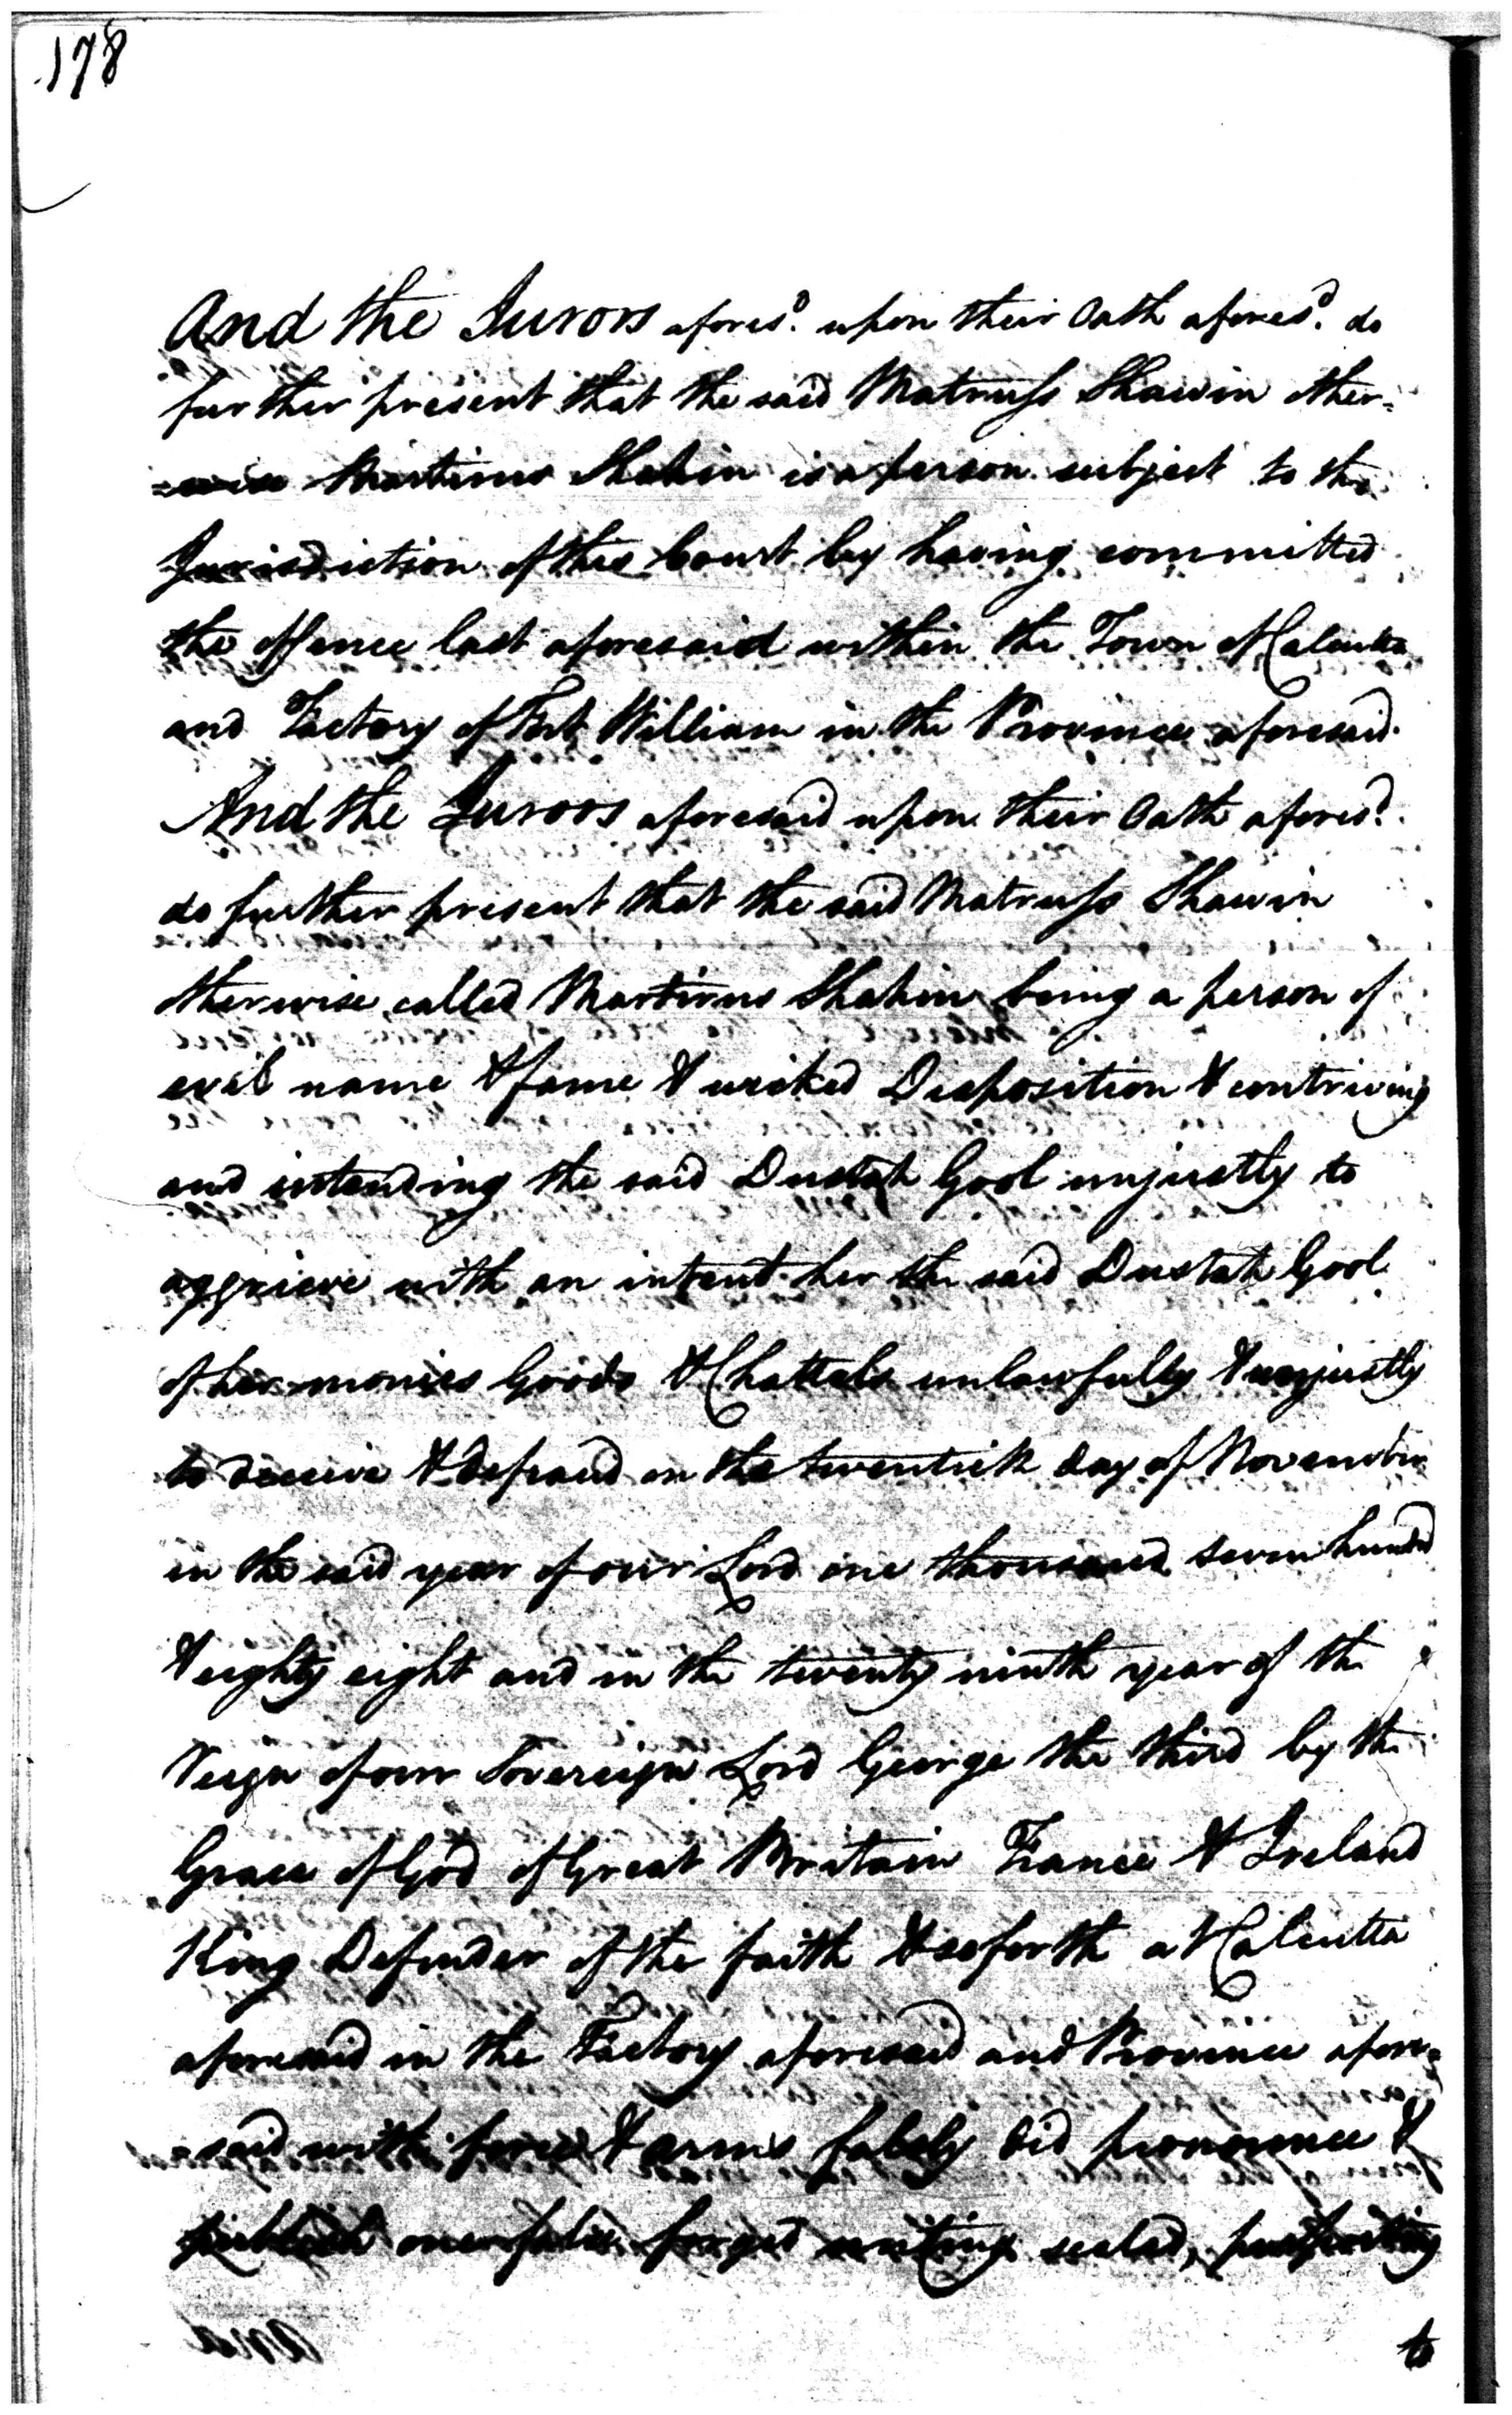 178
And the Jurors afores.d upon their Oath afores.d do
further present that the said Matruss Shawin other=
=wise Martirus Shahin is a person subject to the
Jurisdiction of this Court by having committed
the offence last aforesaid within the Town of Calcutta
and Factory of Fort William in the Province aforesaid.
And the Jurors aforesaid upon their Oath afores.d
do further present that the said Matruss Shawin
otherwise called Martirus Shahin being a person of
evil name & fame & wicked Disposition & contriving
and intending the said Dustah Gool unjustly to
aggrieve with an intent her the said Dustah Gool
of her monies Goods & Chattels unlawfully & unjustly
to deceive & defraud on the twentieth day of November
in the said year of our Lord one thousand seven hundred
& eighty eight and in the twenty ninth year of the
Reign of our Sovereign Lord George the third by the
Grace of God of Great Britain France & Ireland
King Defender of the faith & so forth at Calcutta
aforesaid in the Factory aforesaid and Province afore=
=said with force & arms falsely did pronounce &
publish one false forged writing sealed, purporting
to